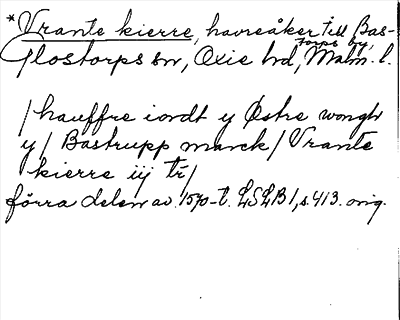 *Vrante kierre, havreåker till Bas-
torps by,
Glostorps sn, Oxie hd, Malm. l.
/ hauffre iordt y Østre wongh
y/ Bastrupp marck/ Vrante
kierre iij tr/
förra delen av 1570-t. LSLB1, s. 413. orig.